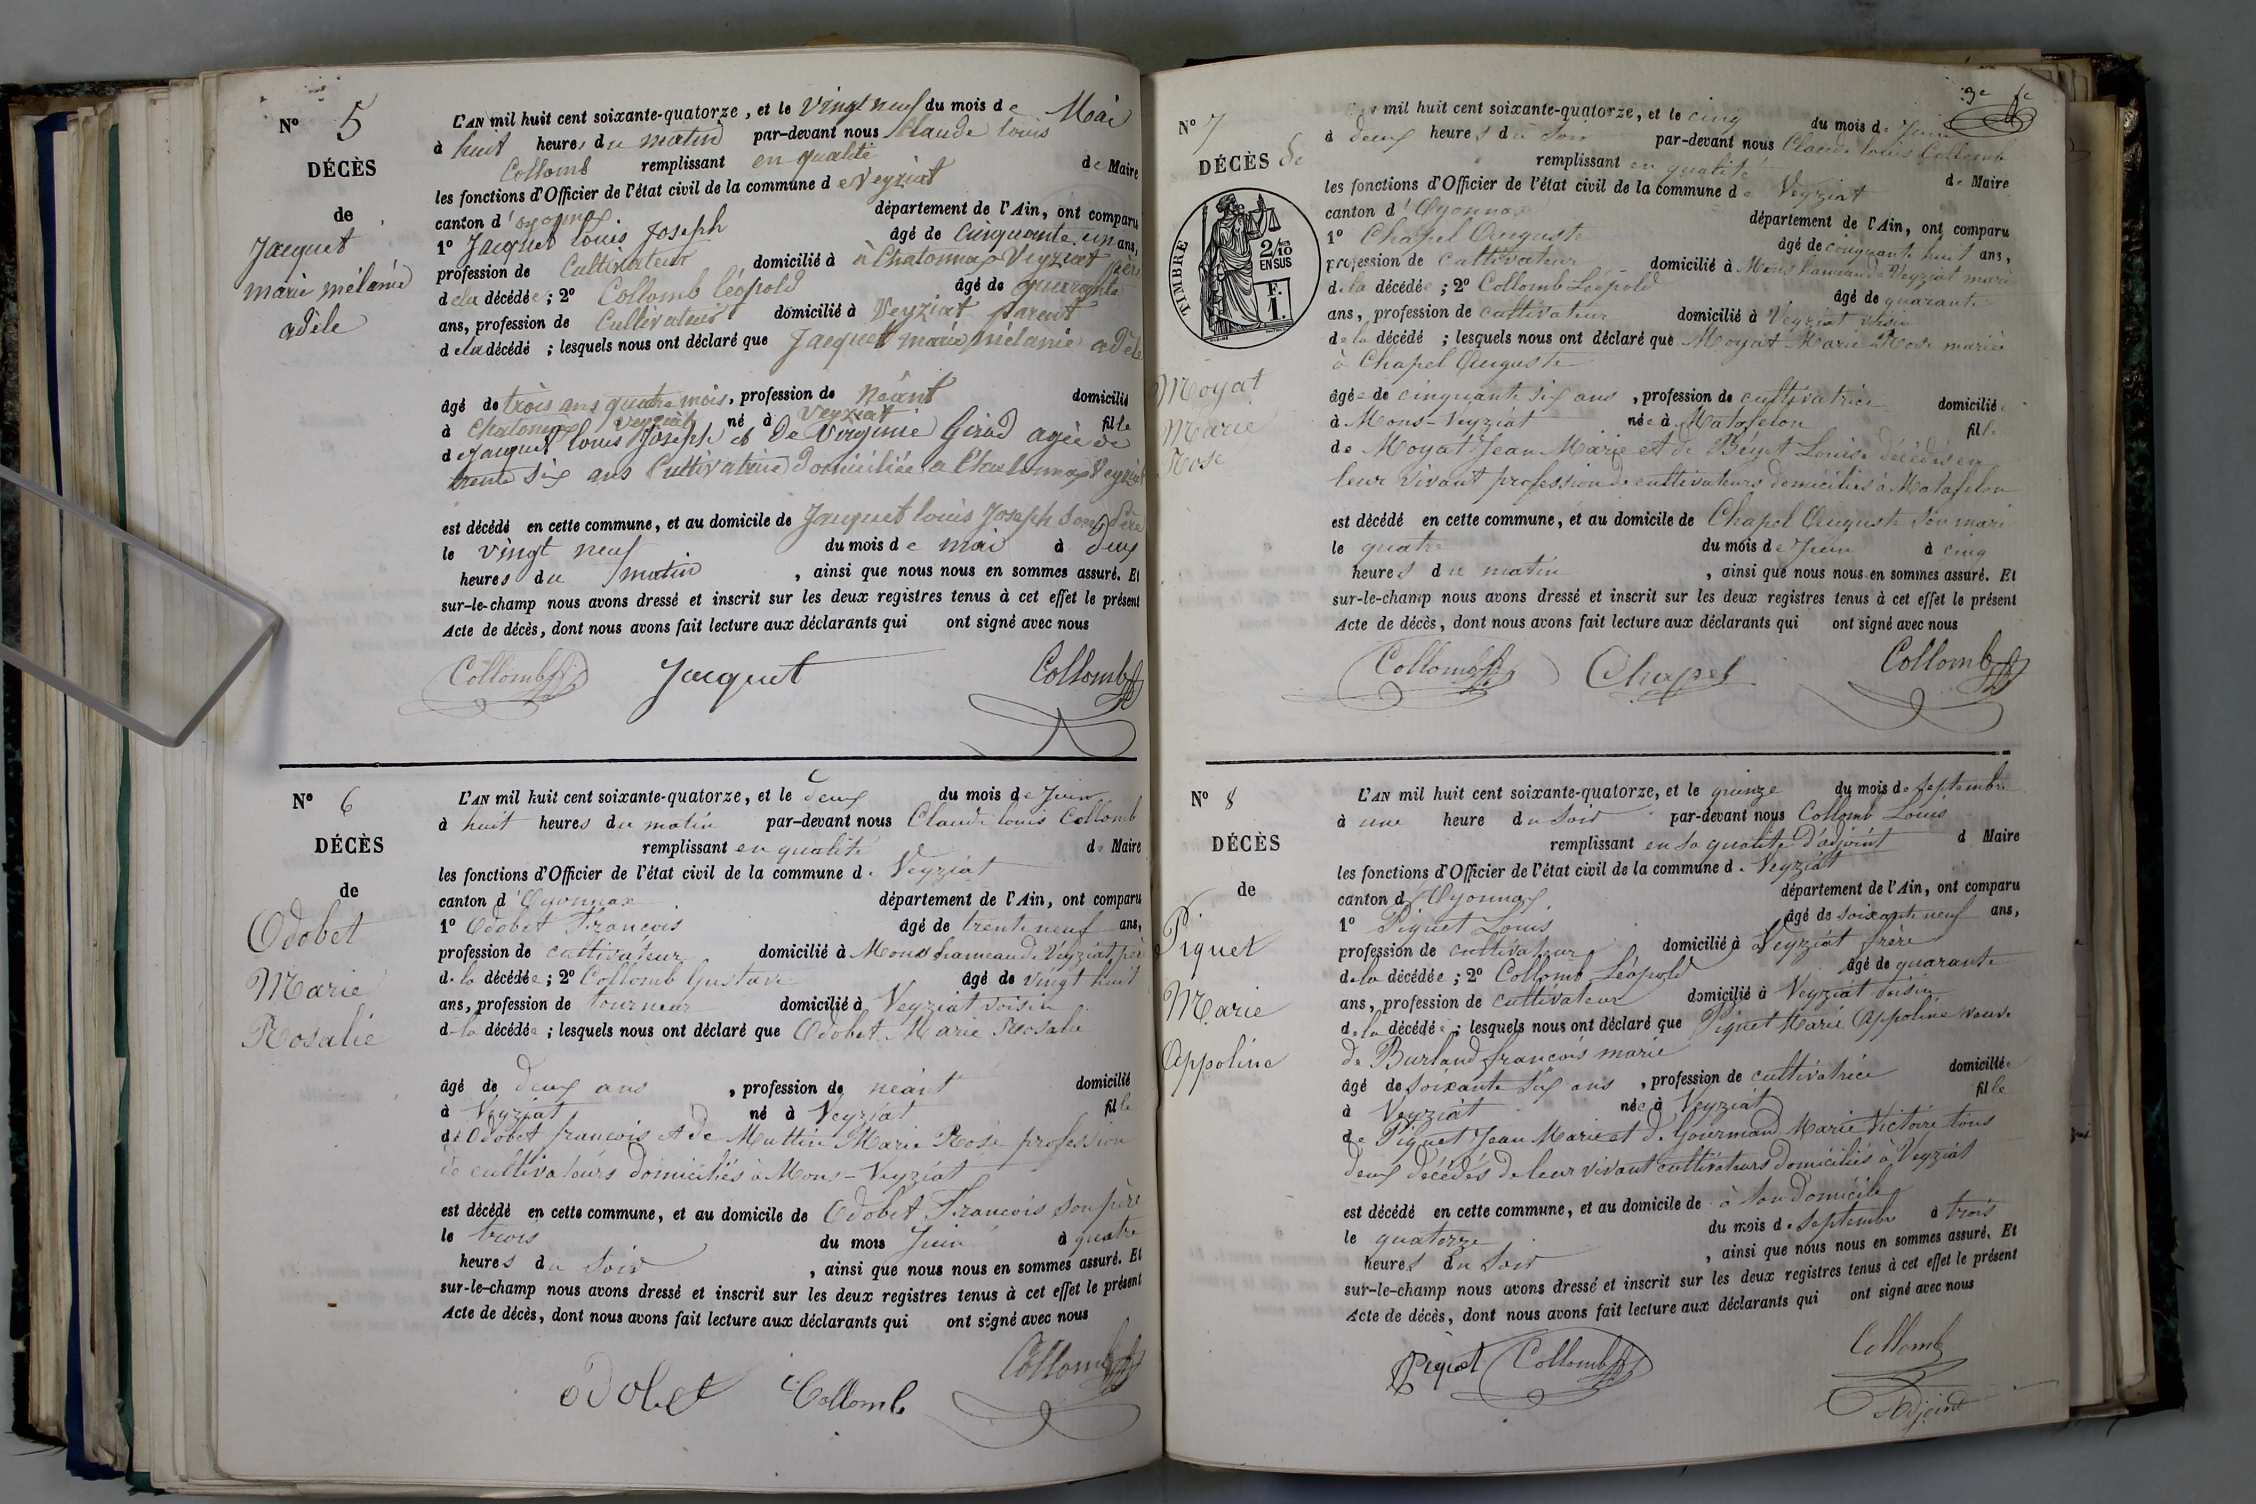 N° 5
DÉCÈS
de
Jacquet
marie mélanie
adèle
L'AN mil huit cent soixante-quatorze, et le vingt neuf du mois de Mai
à huit heures du matin par-devant nous Claude louis
Collomb remplissant en qualité de Maire
les fonctions d'Officier de l'état civil de la commune de Veyziat
canton d'oyonnax département de l'Ain, ont comparu
1° Jacquet louis Joseph âgé de cinquante un ans,
profession de Cultivateur domicilié à à Chatonnax Veyziat père
de la décédée; 2° Collomb léopold âgé de quarante
ans, profession de Cultivateur domicilié à Veyziat parent
de la décédé ; lesquels nous ont déclaré que Jacquet marie mélanie adèle
âgé de trois ans quatre mois, profession de néant domicilié
à Chatonnax Veyziat né à Veyziat fille
de Jacquet louis Joseph et de Virginie Girod agée de
trente six ans Cultivatrice domiciliée a Chatonnax Veyziat
est décédé en cette commune, et au domicile de Jacquet louis Joseph son Père
le vingt neuf du mois de mai à deux
heures du matin , ainsi que nous nous en sommes assuré. Et
sur-le-champ nous avons dressé et inscrit sur les deux registres tenus à cet effet le présent
Acte de décès, dont nous avons fait lecture aux déclarants qui ont signé avec nous
Collomb Jacquet Collomb
N° 6
DÉCÈS
de
Odobet
Marie
Rosalie
L'AN mil huit cent soixante-quatorze, et le deux du mois de Juin
à huit heures du matin par-devant nous Claude louis Collomb
remplissant en qualité de Maire
les fonctions d'Officier de l'état civil de la commune de Veyziat
canton d'Oyonnax département de l'Ain, ont comparu
1° Odobet François âgé de trente neuf ans,
profession de cultivateur domicilié à Mons hameau de Veyziat père
de la décédée; 2° Collomb Gustave âgé de vingt huit
ans, profession de tourneur domicilié à Veyziat voisin
de la décédée; lesquels nous ont déclaré que Odobet Marie Rosalie
âgé de deux ans , profession de néant domicilié
à Veyziat né à Veyziat fille
de Odobet françois et de Muttin Marie Rose profession
de cultivateurs domiciliés à Mons-Veyziat
est décédé en cette commune, et au domicile de Odobet François son père
le trois du mois Juin à quatre
heures du soir , ainsi que nous nous en sommes assuré. Et
sur-le-champ nous avons dressé et inscrit sur les deux registres tenus à cet effet le présent
Acte de décès, dont nous avons fait lecture aux déclarants qui ont signé avec nous
Odobet Collomb Collomb
N° 7
DÉCÈS de
TIMBRE
2/10
EN SUS
F.
1.
Moyat
Marie
Rose
L'AN mil huit cent soixante-quatorze, et le cinq du mois de Juin
à deux heures du soir par-devant nous Claude louis Collomb
remplissant en qualité de Maire
les fonctions d'Officier de l'état civil de la commune de Veyziat
canton d'Oyonnax département de l'Ain, ont comparu
1° Chapel Auguste âgé de cinquante huit ans,
profession de cultivateur domicilié à Mons hameau de Veyziat mari
de la décédée; 2° Collomb Léopold âgé de quarante
ans, profession de cultivateur domicilié à Veyziat voisin
de la décédé ; lesquels nous ont déclaré que Moyat Marie Rose mariée
à Chapel Auguste
âgée de cinquante six ans , profession de cultivatrice domiciliée
à Mons-Veyziat née à Matafelon fille
de Moyat Jean Marie et de Béyet Louise décédés en
leur vivant profession de cultivateurs domiciliés à Matafelon
est décédé en cette commune, et au domicile de Chapel Auguste son mari
le quatre du mois de Juin à cinq
heures du matin , ainsi que nous nous en sommes assuré. Et
sur-le-champ nous avons dressé et inscrit sur les deux registres tenus à cet effet le présent
Acte de décès, dont nous avons fait lecture aux déclarants qui ont signé avec nous
Collomb Chapel Collomb
N° 8
DÉCÈS
de
Piquet
Marie
Appoline
L'AN mil huit cent soixante-quatorze, et le quinze du mois de Septembre
à une heure du soir par-devant nous Collomb Louis
remplissant en sa qualité d'adjoint d Maire
les fonctions d'Officier de l'état civil de la commune de Veyziat
canton d'Oyonnax département de l'Ain, ont comparu
1° Piquet Louis âgé de soixante neuf ans,
profession de cultivateur domicilié à Veyziat frère
de la décédée; 2° Collomb Léopold âgé de quarante
ans, profession de cultivateur domicilié à Veyziat voisin
de la décédée; lesquels nous ont déclaré que Piquet Marie Appoline veuve
de Burland françois marie
âgé de soixante six ans , profession de cultivatrice domiciliée
à Veyziat née à Veyziat fille
de Piquet Jean Marie et de Gourmand Marie Victoire tous
deux décédés de leur vivant cultivateurs domiciliés à Veyziat
est décédé en cette commune, et au domicile de à son domicile
le quatorze du mois de Septembre à trois
heures du soir , ainsi que nous nous en sommes assuré. Et
sur-le-champ nous avons dressé et inscrit sur les deux registres tenus à cet effet le présent
Acte de décès, dont nous avons fait lecture aux déclarants qui ont signé avec nous
Piquet Collomb Collomb
Adjoint